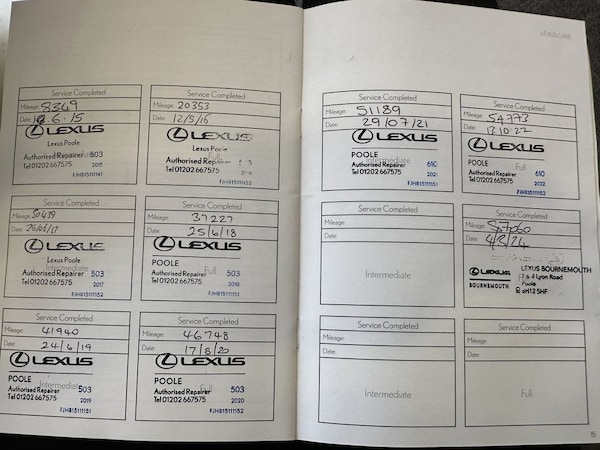 Service Completed
Mileage: 8349
Date: 12.6.15
LEXUS
Lexus Poole
Authorised Repairer 503
Tel 01202 667575 2015
FJHB15111141
Service Completed
Mileage: 20353
Date: 12/5/16
LEXUS
Lexus Poole
Full
Authorised Repairer
Tel 01202 667575
FJHB15111152
Service Completed
Mileage: 30439
Date: 26/06/17
LEXUS
Lexus Poole
Intermediate
Authorised Repairer 503
Tel 01202 667575 2017
FJHB15111152
Service Completed
Mileage: 37227
Date: 25/6/18
LEXUS
POOLE
Full
Authorised Repairer 503
Tel 01202 667575 2018
FJHB15111151
Service Completed
Mileage: 41940
Date: 24/6/19
LEXUS
POOLE
Intermediate
Authorised Repairer 503
Tel 01202 667575 2019
FJHB15111151
Service Completed
Mileage: 46748
Date: 17/8/20
LEXUS
POOLE
Full
Authorised Repairer 503
Tel 01202 667575 2020
FJHB15111152
LEXUS CARE
Service Completed
Mileage: 51189
Date: 29/07/21
LEXUS
POOLE 610
Intermediate
Authorised Repairer 2021
Tel 01202 667575 FJHB15111151
Service Completed
Mileage: 54773
Date: 13.10.22
LEXUS
POOLE 610
Full
Authorised Repairer 2022
Tel 01202 667575 FJHB15111152
Service Completed
Mileage:
Date:
Intermediate
Service Completed
Mileage: 57060
Date: 4/3/24
LEXUS LEXUS BOURNEMOUTH
BOURNEMOUTH Lyon Road
Poole
BH12 5HF
Service Completed
Mileage:
Date:
Intermediate
Service Completed
Mileage:
Date:
Full
15